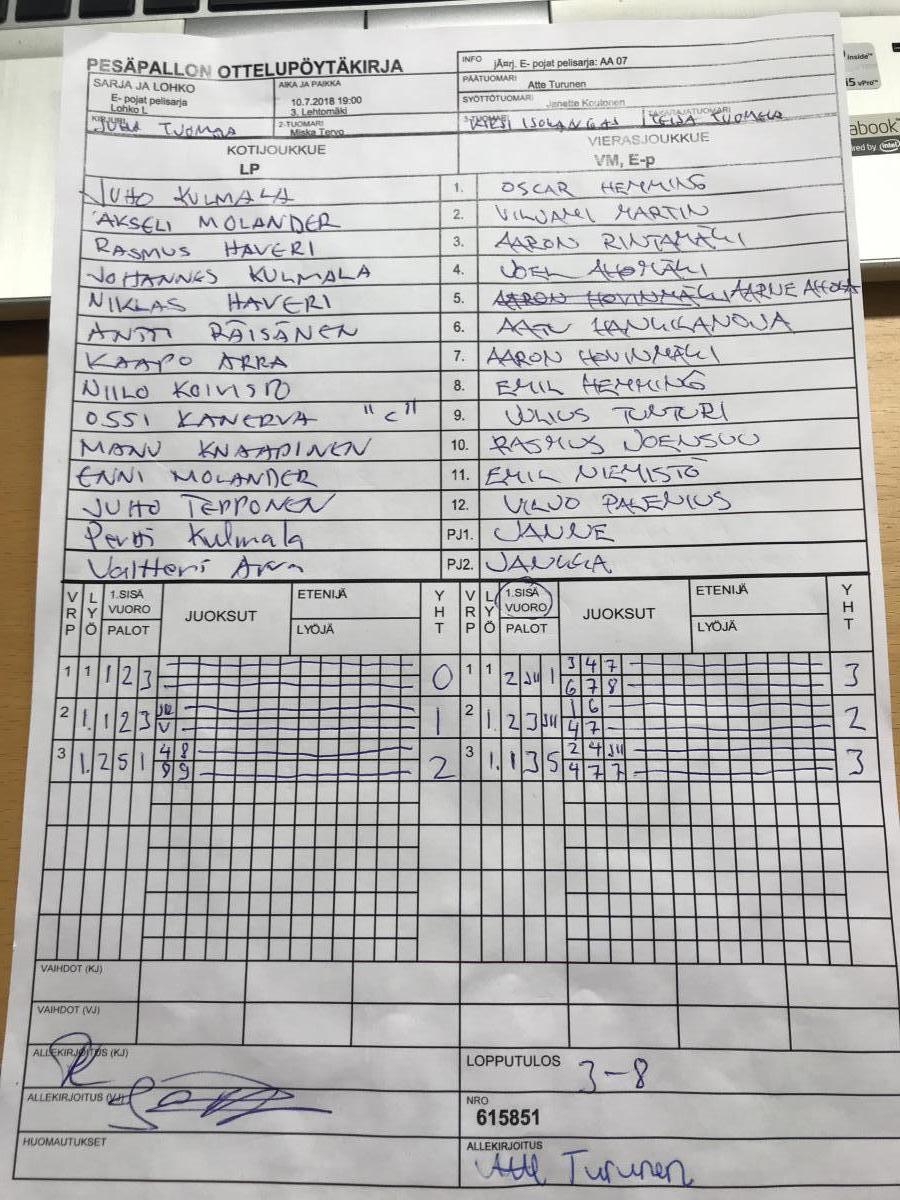 inside™
i5 vPro™
abook
ed by intel
PESÄPALLON OTTELUPÖYTÄKIRJA
INFO jÃ¤rj. E- pojat pelisarja: AA 07
SARJA JA LOHKO AIKA JA PAIKKA PÄÄTUOMARI
E- pojat pelisarja 10.7.2018 19:00 Atte Turunen
Lohko L 3. Lehtomäki SYÖTTÖTUOMARI Janette Koulonen
KIRJURI 2-TUOMARI 3-TUOMARI TAKARAJATUOMARI
TUOMAA Miska Tervo ISOKANGAS TUOMELA
KOTIJOUKKUE VIERASJOUKKUE
LP VM, E-p
JUHO KULMALA 1. OSCAR HEMMING
AKSELI MOLANDER 2. VILJAMI MARTIN
RASMUS HAVERI 3. AARON RINTAMÄKI
JOHANNES KULMALA 4. JOEL AHOMÄKI
NIKLAS HAVERI 5. AARON HOVINMÄKI AARNE
ANTTI RÄISÄNEN 6.
KAAPO ARRA 7. AARON HOVINMÄKI
NIILO KOIVISTO 8. EMIL HEMMING
OSSI KANERVA "C" 9. JULIUS TUNTURI
MANU KNAAPINEN 10. RASMUS JOENSUU
ENNI MOLANDER 11. EMIL NIEMISTÖ
JUHO TEPPONEN 12. VILJO PALENIUS
Pertti Kulmala PJ1. JANNE
Valtteri Arra PJ2. JANKKA
VRP LYÖ 1.SISÄ VUORO PALOT JUOKSUT ETENIJÄ LYÖJÄ YHT VRP LYÖ 1.SISÄ VUORO PALOT JUOKSUT ETENIJÄ LYÖJÄ YHT
1 1 1 2 3 0 1 1 2 JII 1 3 4 7 3
6 7 8
2 1. 1 2 3 1 2 1. 2 3 JII 1 6 2
V 4 7
3 1. 2 5 1 4 8 2 3 1. 1 3 5 2 4 JII 3
8 9 4 7 7
VAIHDOT (KJ)
VAIHDOT (VJ)
ALLEKIRJOITUS (KJ) LOPPUTULOS 3-8
ALLEKIRJOITUS (VJ) NRO
615851
HUOMAUTUKSET ALLEKIRJOITUS
Atte Turunen